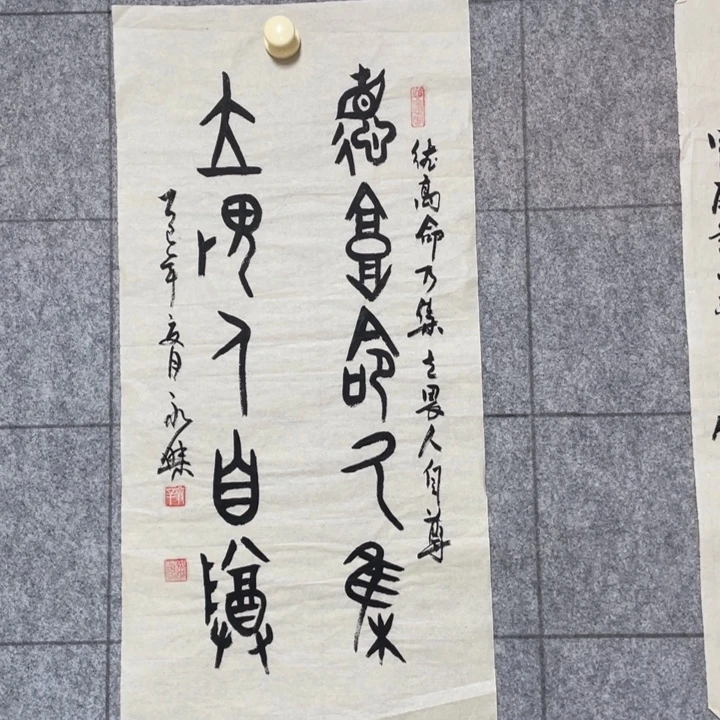 德高命乃集
立畏人自尊
德高命乃集立畏人自尊
乙巳年夏月永